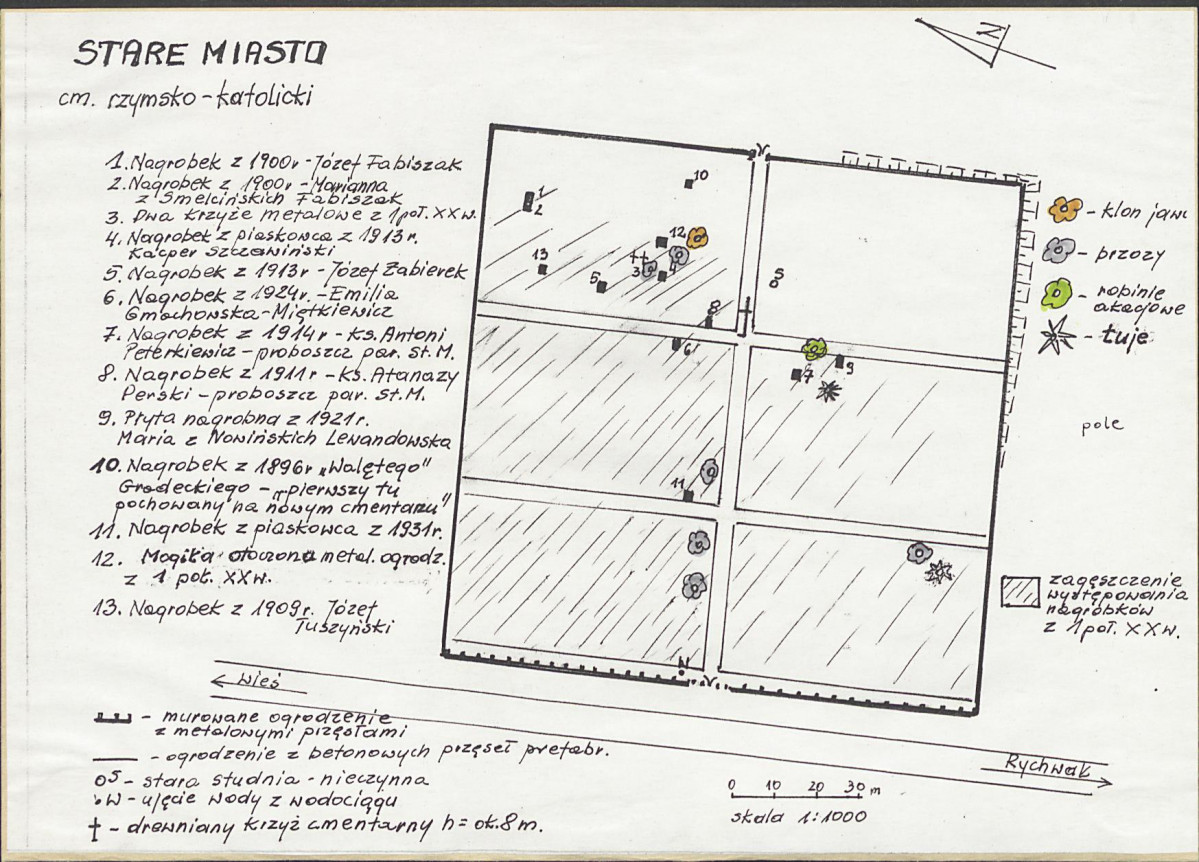 STARE MIASTO
cm. rzymsko-katolicki
1. Nagrobek z 1900r - Józef Fabiszak
2. Nagrobek z 1900r - Marianna
z Smelcińskich Fabiszak
3. Dwa krzyże metalowe z 1 poł. XX w.
4. Nagrobek z piaskowca z 1913r.
Kacper Szczawiński
5. Nagrobek z 1913r - Józef Żabierek
6. Nagrobek z 1924r. - Emilia
Gmochowska-Miętkiewicz
7. Nagrobek z 1914r - ks. Antoni
Peterkiewicz - proboszcz par. St. M.
8. Nagrobek z 1911r - ks. Atanazy
Perski - proboszcz par. St. M.
9. Płyta nagrobna z 1921r.
Maria z Nowińskich Lewandowska
10. Nagrobek z 1896r „Walętego"
Grodeckiego - „pierwszy tu
pochowany na nowym cmentarzu"
11. Nagrobek z piaskowca z 1931r.
12. Mogiła otoczona metal. ogrodz.
z 1 poł. XX w.
13. Nagrobek z 1909r. Józef
Tuszyński
N
1
2
10
12
13
3
4
5
S
8
6
7
9
11
W
- klon jaw
- brzozy
- robinie
akacjowe
- tuje
pole
zagęszczenie
występowania
nagrobków
z 1 poł. XX w.
wieś
Rychwał
- murowane ogrodzenie
z metalowymi przęsłami
- ogrodzenie z betonowych przęseł prefabr.
S - stara studnia - nieczynna
W - ujęcie wody z wodociągu
- drewniany krzyż cmentarny h = ok. 8 m.
0 10 20 30 m
skala 1:1000